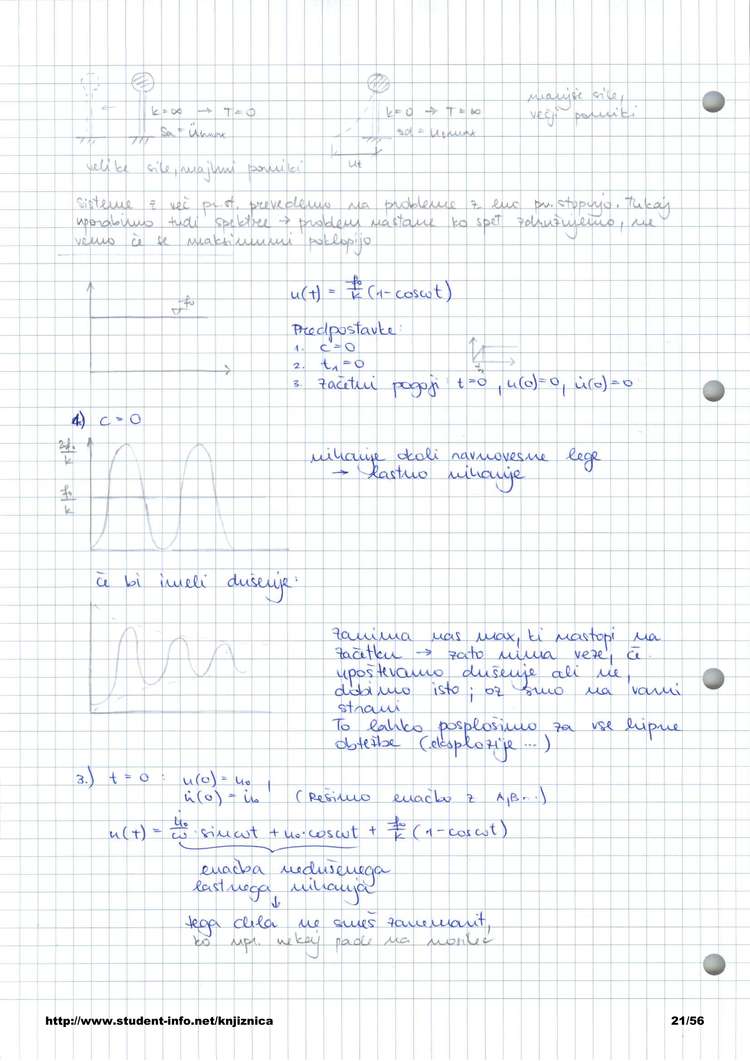 k=∞ → T=0
Sa = ümax
velike sile, majhni pomiki
k=0 → T=∞
sd = umax
ut
manjše sile,
večji pomiki
Sisteme z več pr.st. prevedemo na probleme z eno pr.stopnjo. Tukaj
uporabimo tudi spektre → problem nastane ko spet združujemo, ne
vemo če se maksimumi poklopijo
f₀
u(t) = f₀/k (1-cosωt)
Predpostavke:
1. c=0
2. t₁=0
t₁
3. začetni pogoji t=0, u(0)=0, u̇(0)=0
1.) c=0
2f₀/k
f₀/k
nihanje okoli ravnovesne lege
→ lastno nihanje
če bi imeli dušenje:
zanima nas max, ki nastopi na
začetku → zato nima veze, če
upoštevamo dušenje ali ne,
dobimo isto; oz smo na varni
strani
To lahko posplošimo za vse hipne
obtežbe (eksplozije ...)
3.) t=0 : u(0)=u₀
u̇(0)=u̇₀ (Rešimo enačbo z A,B...)
u(t) = u̇₀/ω · sinωt + u₀·cosωt + f₀/k (1-cosωt)
enačba nedušenega
lastnega nihanja
↓
tega dela ne smeš zanemarit,
ko npr. nekaj pade na nosilec
http://www.student-info.net/knjiznica
21/56